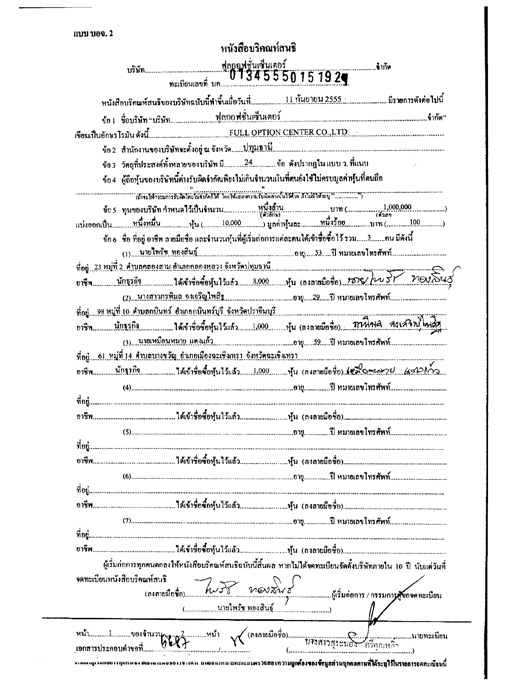 แบบ บอจ. 2
หนังสือบริคณห์สนธิ
บริษัท ฟูลออฟชั่นเซ็นเตอร์ จำกัด
ทะเบียนเลขที่ บค. 0134555015192
หนังสือบริคณห์สนธิของบริษัทฉบับนี้ทำขึ้นเมื่อวันที่ 11 กันยายน 2555 มีรายการดังต่อไปนี้
ข้อ 1 ชื่อบริษัท "บริษัท ฟูลออฟชั่นเซ็นเตอร์ จำกัด"
เขียนเป็นอักษรโรมัน ดังนี้ FULL OPTION CENTER CO.,LTD.
ข้อ 2 สำนักงานของบริษัทจะตั้งอยู่ ณ จังหวัด ปทุมธานี
ข้อ 3 วัตถุที่ประสงค์ทั้งหลายของบริษัท มี 24 ข้อ ดังปรากฏในแบบ ว. ที่แนบ
ข้อ 4 ผู้ถือหุ้นของบริษัทนี้ต่างรับผิดจำกัดเพียงไม่เกินจำนวนเงินที่ตนยังใช้ไม่ครบมูลค่าหุ้นที่ตนถือ
ข้อ 5 ทุนของบริษัท กำหนดไว้เป็นจำนวน หนึ่งล้าน บาท ( 1,000,000 )
(ตัวอักษร) (ตัวเลข)
แบ่งออกเป็น หนึ่งหมื่น หุ้น ( 10,000 ) มูลค่าหุ้นละ หนึ่งร้อย บาท ( 100 )
ข้อ 6 ชื่อ ที่อยู่ อาชีพ ลายมือชื่อ และจำนวนหุ้นที่ผู้เริ่มก่อการแต่ละคนได้เข้าชื่อซื้อไว้ รวม 3 คน มีดังนี้
(1) นายไพรัช ทองสินธุ์ อายุ 53 ปี หมายเลขโทรศัพท์
ที่อยู่ 23 หมู่ที่ 2 ตำบลคลองสาม อำเภอคลองหลวง จังหวัดปทุมธานี
อาชีพ นักธุรกิจ ได้เข้าชื่อซื้อหุ้นไว้แล้ว 8,000 หุ้น (ลงลายมือชื่อ) นายไพรัช ทองสินธุ์
(2) นางสาวภรพิมล อายุ 29 ปี หมายเลขโทรศัพท์
ที่อยู่ 98 หมู่ที่ 10 ตำบลกบินทร์ อำเภอกบินทร์บุรี จังหวัดปราจีนบุรี
อาชีพ นักธุรกิจ ได้เข้าชื่อซื้อหุ้นไว้แล้ว 1,000 หุ้น (ลงลายมือชื่อ)
(3) นายเหมือนหมาย แดงแก้ว อายุ 59 ปี หมายเลขโทรศัพท์
ที่อยู่ 61 หมู่ที่ 14 ตำบลบางขวัญ อำเภอเมืองฉะเชิงเทรา จังหวัดฉะเชิงเทรา
อาชีพ นักธุรกิจ ได้เข้าชื่อซื้อหุ้นไว้แล้ว 1,000 หุ้น (ลงลายมือชื่อ) เหมือนหมาย แดงแก้ว
(4) อายุ ปี หมายเลขโทรศัพท์
ที่อยู่
อาชีพ ได้เข้าชื่อซื้อหุ้นไว้แล้ว หุ้น (ลงลายมือชื่อ)
(5) อายุ ปี หมายเลขโทรศัพท์
ที่อยู่
อาชีพ ได้เข้าชื่อซื้อหุ้นไว้แล้ว หุ้น (ลงลายมือชื่อ)
(6) อายุ ปี หมายเลขโทรศัพท์
ที่อยู่
อาชีพ ได้เข้าชื่อซื้อหุ้นไว้แล้ว หุ้น (ลงลายมือชื่อ)
(7) อายุ ปี หมายเลขโทรศัพท์
ที่อยู่
อาชีพ ได้เข้าชื่อซื้อหุ้นไว้แล้ว หุ้น (ลงลายมือชื่อ)
ผู้เริ่มก่อการทุกคนตกลงให้หนังสือบริคณห์สนธิฉบับนี้สิ้นผล หากไม่ได้จดทะเบียนจัดตั้งบริษัทภายใน 10 ปี นับแต่วันที่
จดทะเบียนหนังสือบริคณห์สนธิ
(ลงลายมือชื่อ) ไพรัช ทองสินธุ์ ผู้เริ่มก่อการ / กรรมการผู้ขอจดทะเบียน
( นายไพรัช ทองสินธุ์ )
หน้า 1 ของจำนวน หน้า (ลงลายมือชื่อ) นายทะเบียน
เอกสารประกอบคำขอที่ ( )